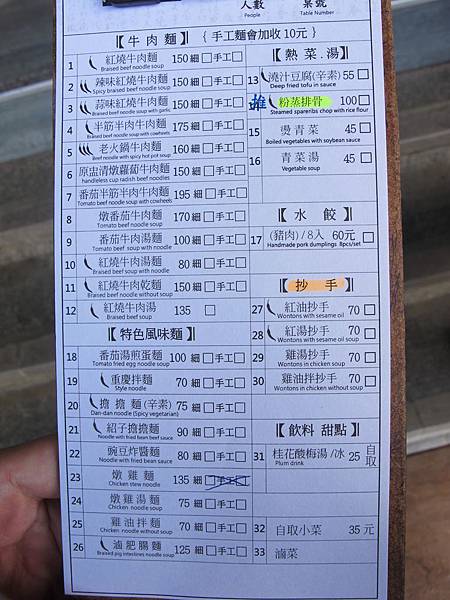 人數 桌號
People Table Number
【 牛 肉 麵 】 { 手工麵會加收 10元 }
1 紅燒牛肉麵 150 細□手工□
Braised beef noodle soup
2 辣味紅燒牛肉麵 150 細□手工□
Spicy braised beef noodle soup
3 蒜味紅燒牛肉麵 150 細□手工□
Braised beef noodle soup with garlic
4 半筋半肉牛肉麵 175 細□手工□
Braised beef noodle soup with cowheels
5 老火鍋牛肉麵 160 細□手工□
Beef noodle with spicy hot pot soup
6 原盅清燉蘿蔔牛肉麵 150 細□手工□
handleless cup radish beef noodles
7 番茄半筋半肉牛肉麵 195 細□手工□
Tomato beef noodle soup with cowheels
8 燉番茄牛肉麵 170 細□手工□
Tomato beef noodle soup
9 番茄牛肉湯麵 100 細□手工□
Tomato beef soup with noodle
10 紅燒牛肉湯麵 80 細□手工□
Braised beef soup with noodle
11 紅燒牛肉乾麵 150 細□手工□
Braised beef noodle without soup
12 紅燒牛肉湯 135 □
Braised beef soup
【 特色風味麵 】
18 番茄湯煎蛋麵 100 細□手工□
Tomato fried egg noodle soup
19 重慶拌麵 70 細□手工□
Style noodle
20 擔擔麵(辛素) 75 細□手工□
Dan-dan noodle (Spicy vegetarian)
21 紹子擔擔麵 90 細□手工□
Noodle with fried bean beef soup
22 豌豆炸醬麵 80 細□手工□
Noodle with fried bean sauce
23 燉雞麵 135 細□手工□
Chicken stew noodle
24 燉雞湯麵 75 細□手工□
Chicken noodle soup
25 雞油拌麵 70 細□手工□
Chicken noodle without soup
26 滷肥腸麵 125 細□手工□
Braised pig intestines noodle soup
【 熱 菜 . 湯 】
13 澆汁豆腐(辛素) 55 □
Deep fried tofu in sauce
推 粉蒸排骨 100 □
Steamed spareribs chop with rice flour
15 燙青菜 45 □
Boiled vegetables with soybean sauce
16 青菜湯 45 □
Vegetable soup
【 水 餃 】
17 (豬肉) / 8入 60元 □
Handmade pork dumplings 8pcs/set
【 抄 手 】
27 紅油抄手 70 □
Wontons with sesame oil
28 紅湯抄手 70 □
Wontons with sesame oil soup
29 雞湯抄手 70 □
Wontons in chicken soup
30 雞油拌抄手 70 □
Wontons in chicken without soup
【 飲料 甜點 】
31 桂花酸梅湯/冰 25 自取
Plum drink
32 自取小菜 35 元
33 滷菜